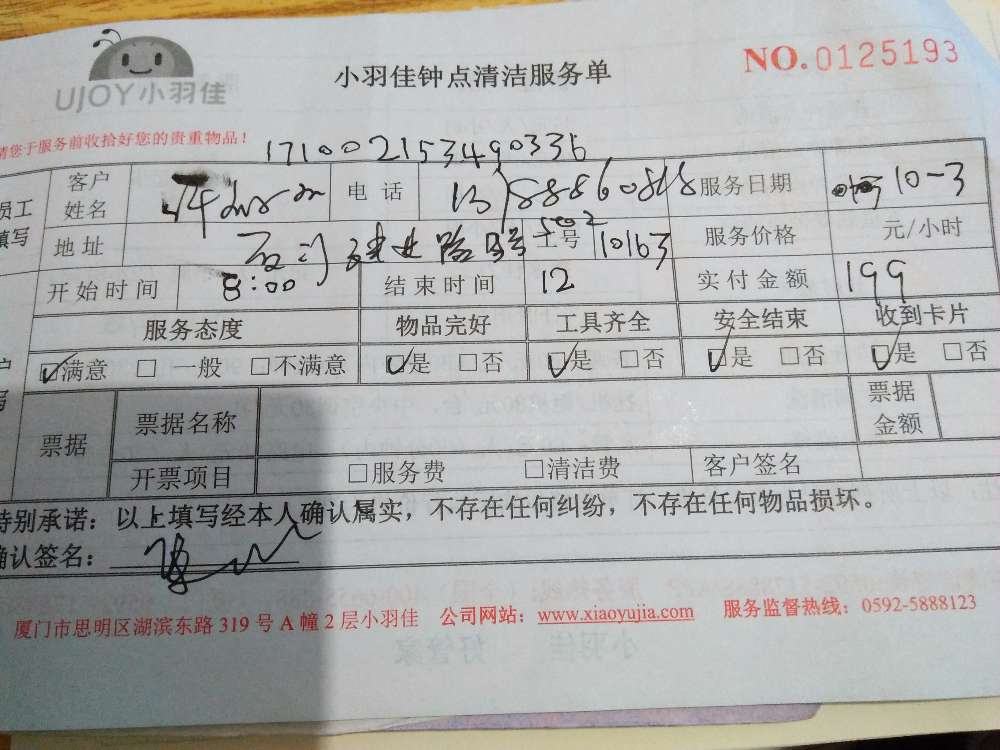 UJOY小羽佳
小羽佳钟点清洁服务单
NO.0125193
请您于服务前收拾好您的贵重物品！
171002153490336
员工填写
客户姓名
电话
服务日期 10-3
地址 工号 10163 服务价格 元/小时
开始时间 8:00 结束时间 12 实付金额 199
服务态度 物品完好 工具齐全 安全结束 收到卡片
☑满意 □一般 □不满意 ☑是 □否 ☑是 □否 ☑是 □否 ☑是 □否
票据 票据名称 票据金额
开票项目 □服务费 □清洁费 客户签名
特别承诺：以上填写经本人确认属实，不存在任何纠纷，不存在任何物品损坏。
确认签名：
厦门市思明区湖滨东路 319 号 A 幢 2 层小羽佳 公司网站：www.xiaoyujia.com 服务监督热线：0592-5888123